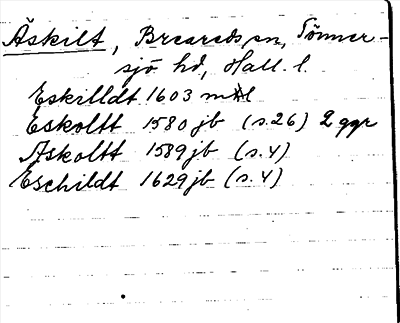 Äskilt, Breareds sn, Tönner-
sjö hd, Hall. l.
Eskilldt 1603 mtl
Eskoltt 1580 jb (s. 26) 2 ggr
Askoltt 1589 jb (s. 4)
Eschildt 1629 jb (s. 4)